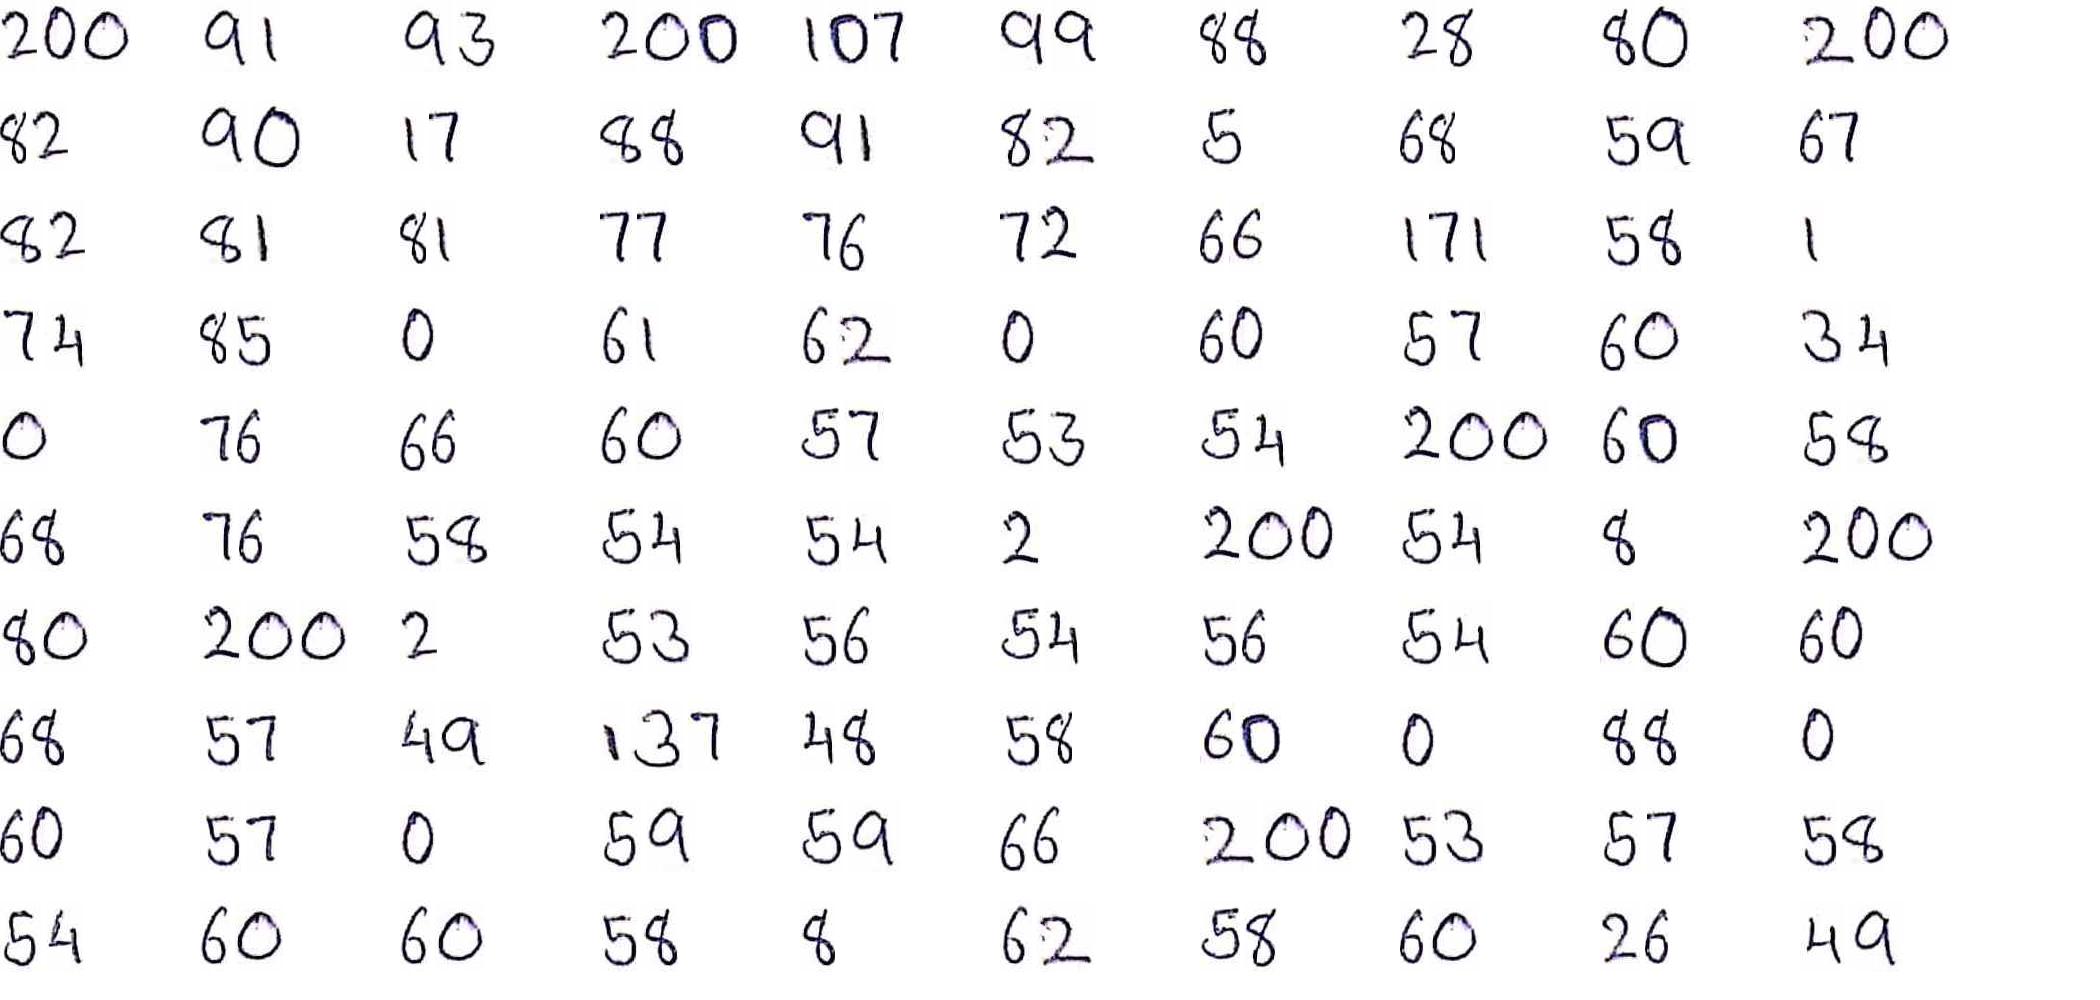 200 91 93 200 107 99 88 28 80 200
82 90 17 88 91 82 5 68 59 67
82 81 81 77 76 72 66 171 58 1
74 85 0 61 62 0 60 57 60 34
0 76 66 60 57 53 54 200 60 58
68 76 58 54 54 2 200 54 8 200
80 200 2 53 56 54 56 54 60 60
68 57 49 137 48 58 60 0 88 0
60 57 0 59 59 66 200 53 57 58
54 60 60 58 8 62 58 60 26 49